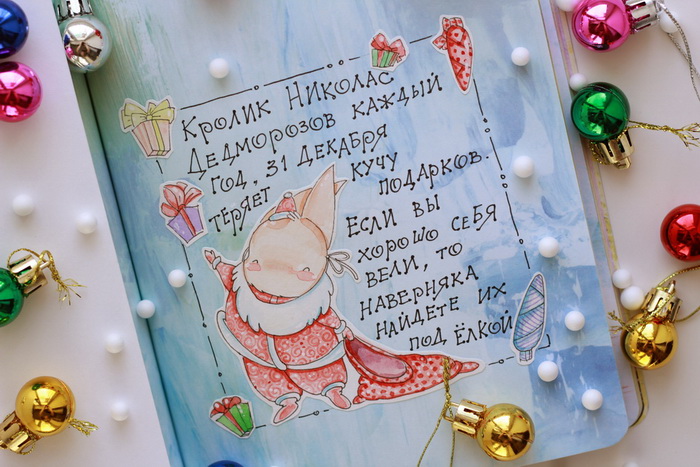 Кролик Николас
Дедморозов каждый
год, 31 декабря
теряет кучу
подарков.
Если вы
хорошо себя
вели, то
наверняка
найдете их
под ёлкой